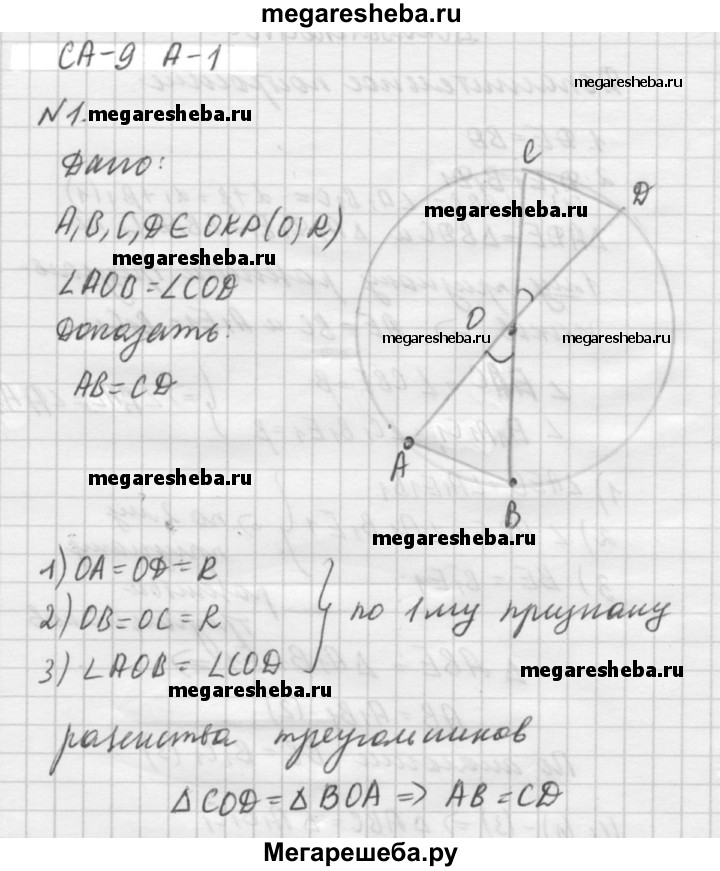 www.megaresheba.ru
СА-9 А-1
megaresheba.ru
№1. megaresheba.ru
Дано:
C
D
megaresheba.ru
A, B, C, D ∈ ОКР(О; R)
megaresheba.ru
∠AOB = ∠COD
O
Доказать:
megaresheba.ru megaresheba.ru
AB = CD
A
megaresheba.ru
B
megaresheba.ru
1) OA = OD = R
2) OB = OC = R
по 1му признаку
3) ∠AOB = ∠COD
megaresheba.ru
megaresheba.ru
равенства треугольников
megaresheba.ru
△COD = △BOA ⇒ AB = CD
Мегарешеба.ру